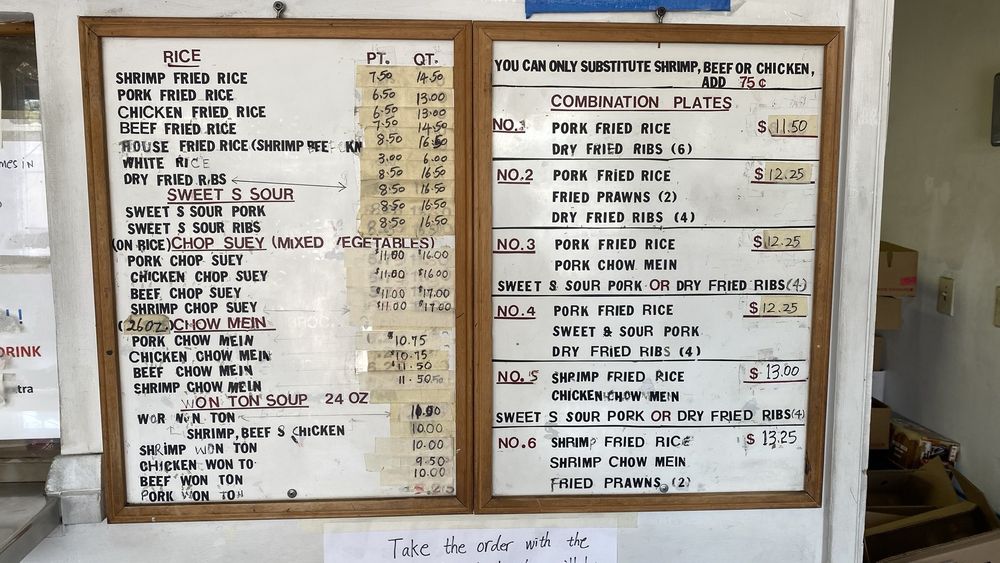 RICE PT. QT.
SHRIMP FRIED RICE 7.50 14.50
PORK FRIED RICE 6.50 13.00
CHICKEN FRIED RICE 6.50 13.00
BEEF FRIED RICE 7.50 14.50
HOUSE FRIED RICE (SHRIMP BEEF CKN 8.50 16.50
WHITE RICE 3.00 6.00
DRY FRIED RIBS 8.50 16.50
SWEET S SOUR 8.50 16.50
SWEET S SOUR PORK 8.50 16.50
SWEET S SOUR RIBS 8.50 16.50
(ON RICE) CHOP SUEY (MIXED VEGETABLES)
PORK CHOP SUEY $11.00 $16.00
CHICKEN CHOP SUEY $11.00 $16.00
BEEF CHOP SUEY $11.00 $17.00
SHRIMP CHOP SUEY $11.00 $17.00
(26OZ.) CHOW MEIN
PORK CHOW MEIN $10.75
CHICKEN CHOW MEIN $10.75
BEEF CHOW MEIN $11.50
SHRIMP CHOW MEIN 11.50
WON TON SOUP 24 OZ
WOR WON TON
SHRIMP, BEEF S CHICKEN 10.00
SHRIMP WON TON 10.00
CHICKEN WON TO 9.50
BEEF WON TON 10.00
PORK WON TON
YOU CAN ONLY SUBSTITUTE SHRIMP, BEEF OR CHICKEN,
ADD 75¢
COMBINATION PLATES
NO.1 PORK FRIED RICE $11.50
DRY FRIED RIBS (6)
NO.2 PORK FRIED RICE $12.25
FRIED PRAWNS (2)
DRY FRIED RIBS (4)
NO.3 PORK FRIED RICE $12.25
PORK CHOW MEIN
SWEET & SOUR PORK OR DRY FRIED RIBS (4)
NO.4 PORK FRIED RICE $12.25
SWEET & SOUR PORK
DRY FRIED RIBS (4)
NO.5 SHRIMP FRIED RICE $13.00
CHICKEN CHOW MEIN
SWEET S SOUR PORK OR DRY FRIED RIBS (4)
NO.6 SHRIMP FRIED RICE $13.25
SHRIMP CHOW MEIN
FRIED PRAWNS (2)
Take the order with the
mes in
!!
DRINK
tra